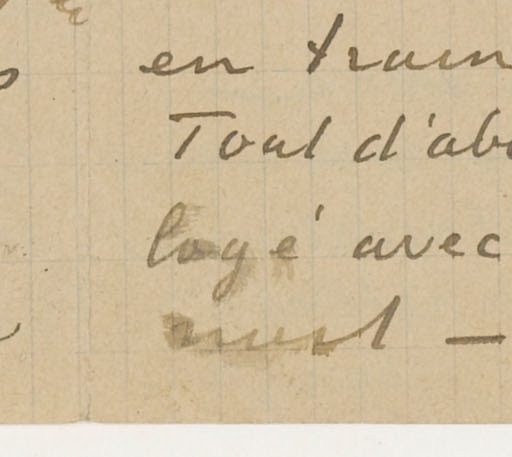 en train
Tout d'abo
logé avec
nuit —